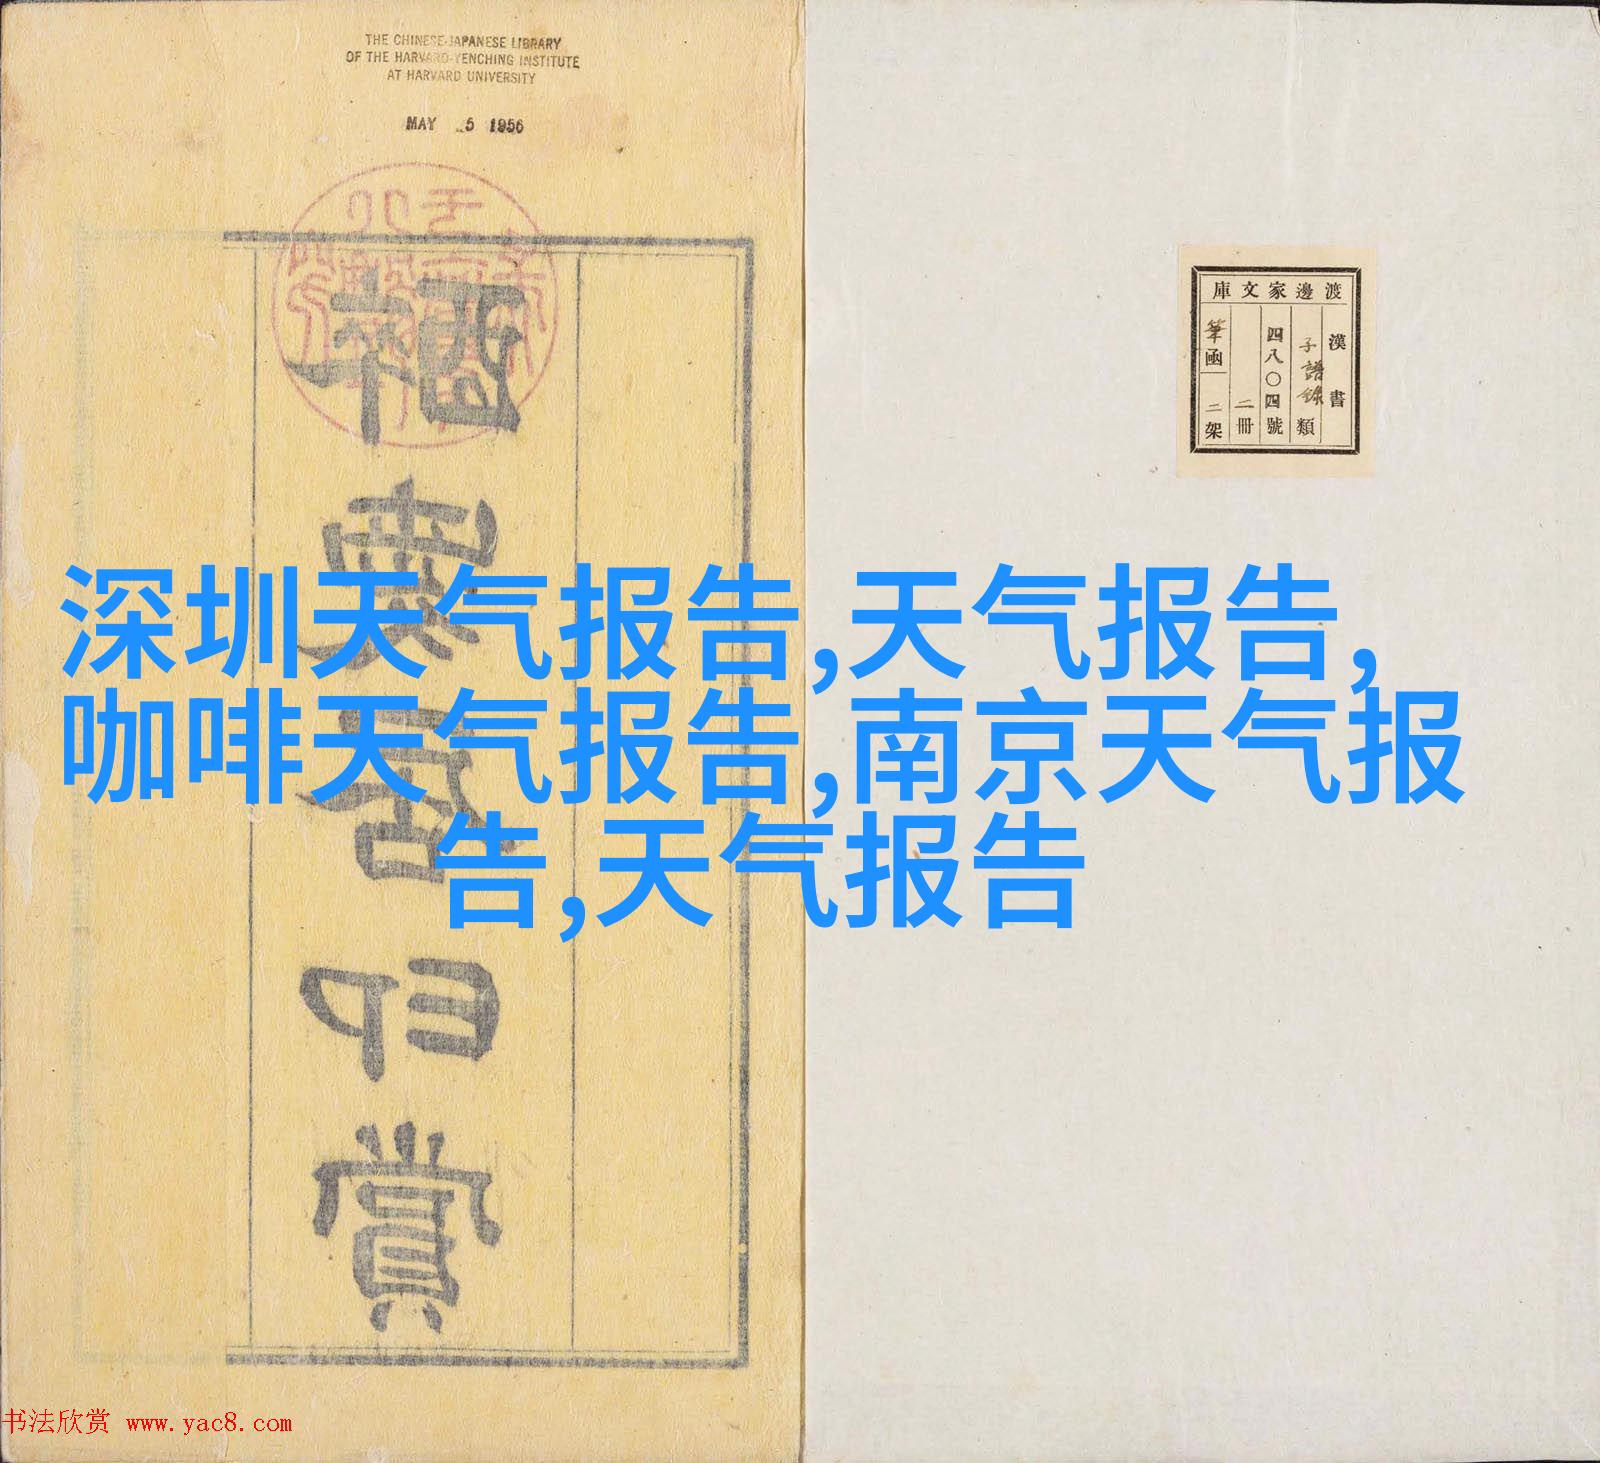 THE CHINESE-JAPANESE LIBRARY
OF THE HARVARD-YENCHING INSTITUTE
AT HARVARD UNIVERSITY
MAY 5 1956
渡邊家文庫
漢書
子譜錄類
四八〇四號
二冊
筆函二架
深圳天气报告,天气报告,
咖啡天气报告,南京天气报
告,天气报告
印
賞
书法欣赏 www.yac8.com